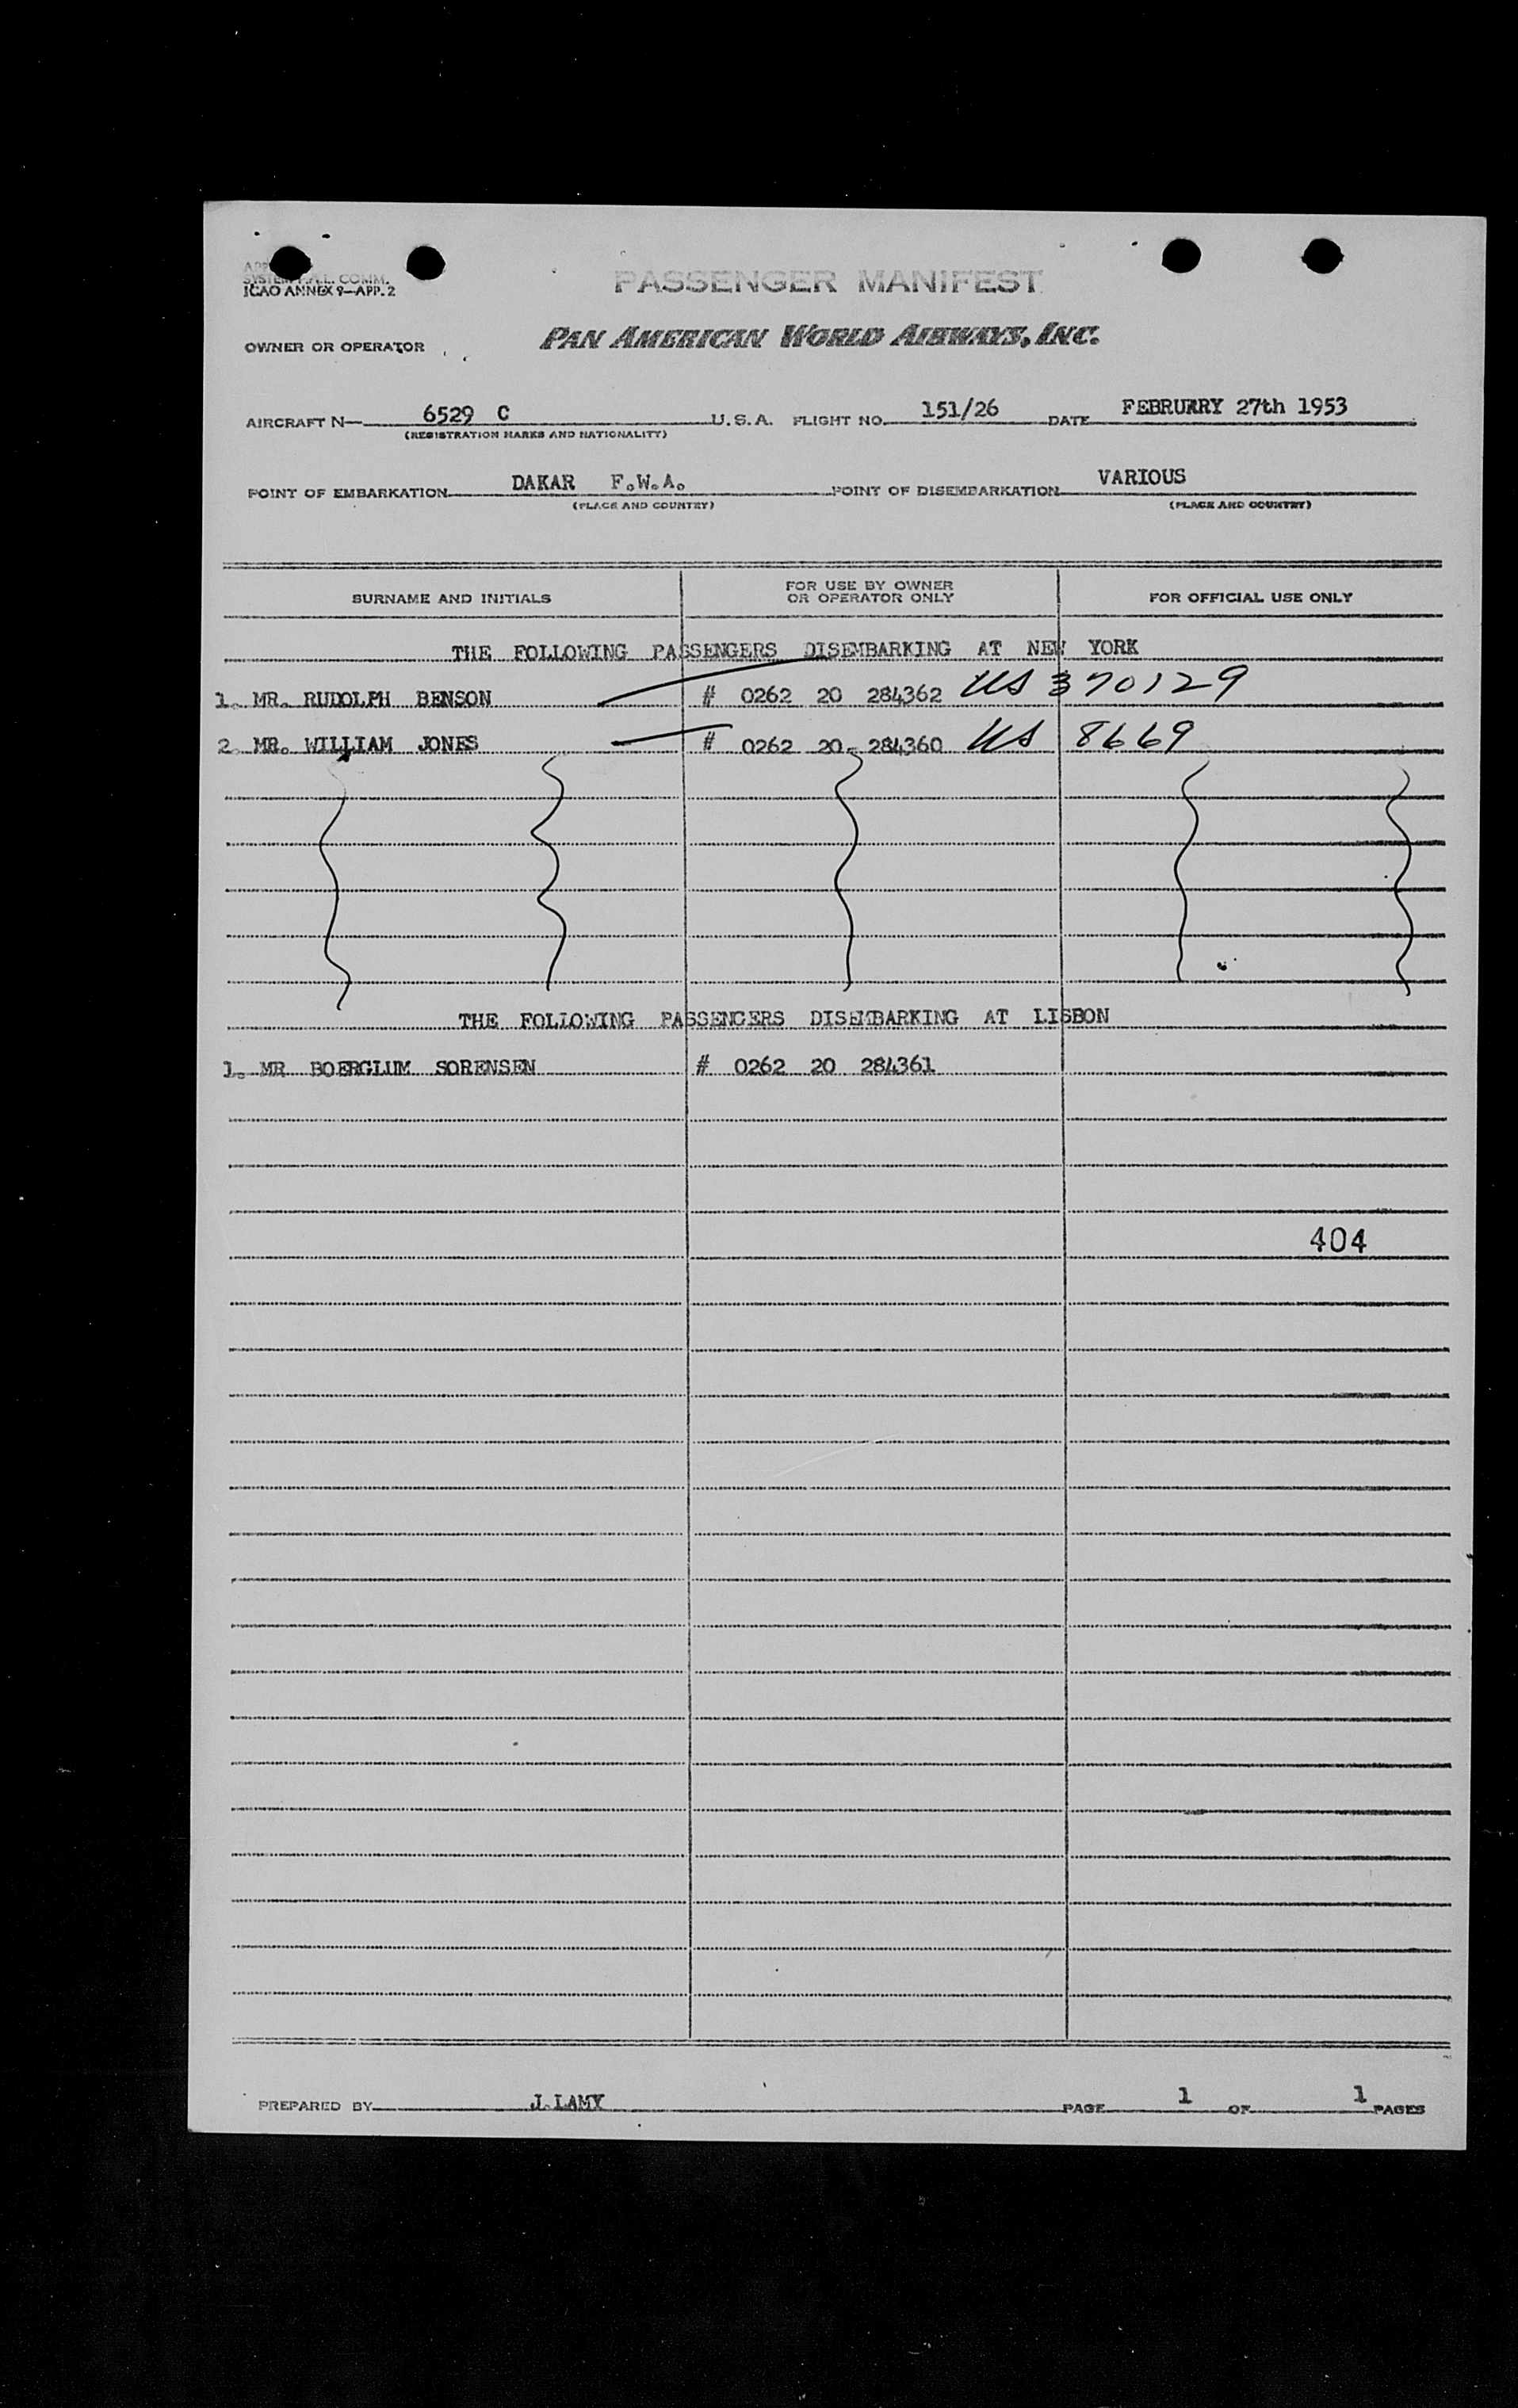 SYSTEM F.A.L. COMM.
ICAO ANNEX 9—APP. 2
PASSENGER MANIFEST
OWNER OR OPERATOR PAN AMERICAN WORLD AIRWAYS, INC.
AIRCRAFT N— 6529 C U.S.A. FLIGHT NO. 151/26 DATE FEBRUARY 27th 1953
(REGISTRATION MARKS AND NATIONALITY)
POINT OF EMBARKATION DAKAR F.W.A. POINT OF DISEMBARKATION VARIOUS
(PLACE AND COUNTRY) (PLACE AND COUNTRY)
SURNAME AND INITIALS FOR USE BY OWNER OR OPERATOR ONLY FOR OFFICIAL USE ONLY
THE FOLLOWING PASSENGERS DISEMBARKING AT NEW YORK
1. MR. RUDOLPH BENSON # 0262 20 284362 US 370129
2. MR. WILLIAM JONES # 0262 20 284360 US 8669
THE FOLLOWING PASSENGERS DISEMBARKING AT LISBON
1. MR BOERGLUM SORENSEN # 0262 20 284361
404
PREPARED BY J.LAMY PAGE 1 OF 1 PAGES